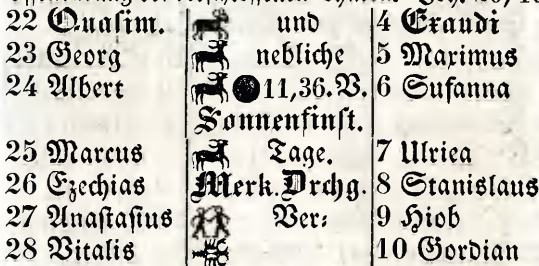 22 Quasim. und 4 Exaudi
23 Georg nebliche 5 Maximus
24 Albert 11,36.V. 6 Susanna
Sonnenfinst.
25 Marcus Tage. 7 Ulrica
26 Ezechias Merk.Drchg. 8 Stanislaus
27 Anastasius Ver: 9 Hiob
28 Vitalis 10 Gordian